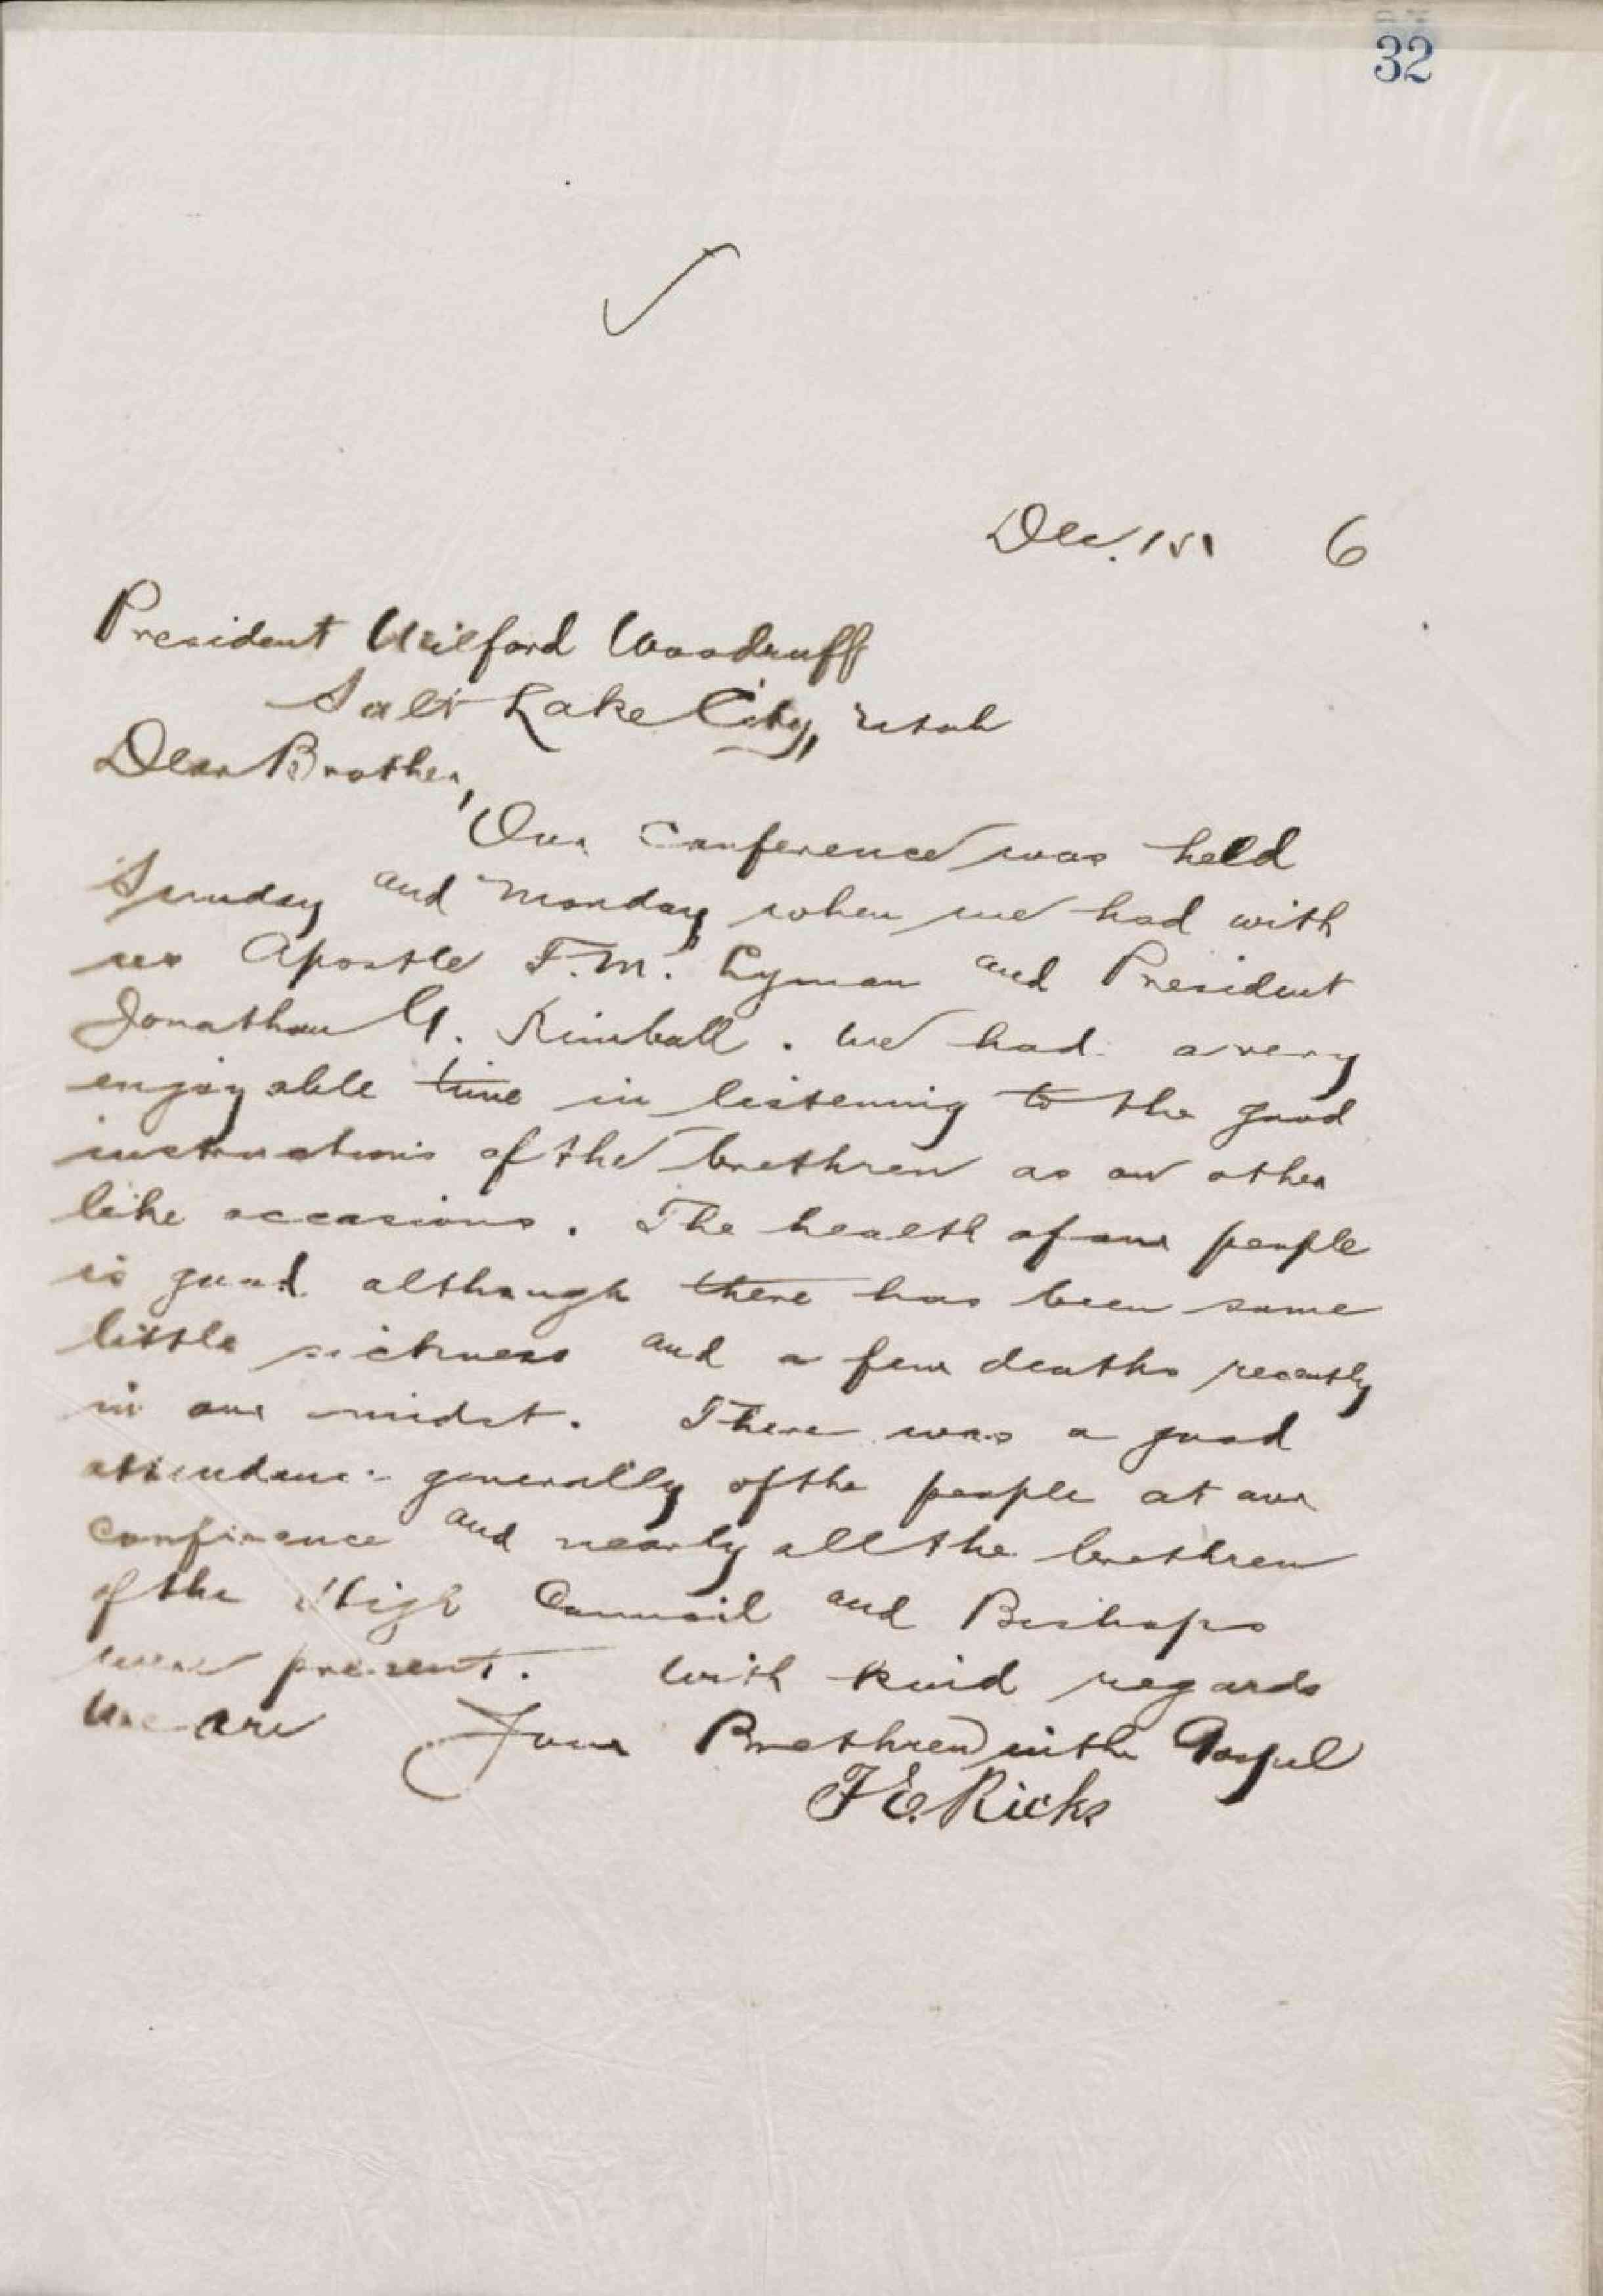 32
Dec. 1st 6
President Wilford Woodruff
Salt Lake City, Utah
Dear Brother,
Our Conference was held
Sunday and Monday when we had with
us Apostle F.M. Lyman and President
Jonathan G. Kimball. We had a very
enjoyable time in listening to the good
instructions of the brethren as on other
like occasions. The health of our people
is good although there has been some
little sickness and a few deaths recently
in our midst. There was a good
attendance generally of the people at our
conference and nearly all the brethren
of the High Council and Bishops
were present. With kind regards
We are Your Brethren in the Gospel
T E. Ricks